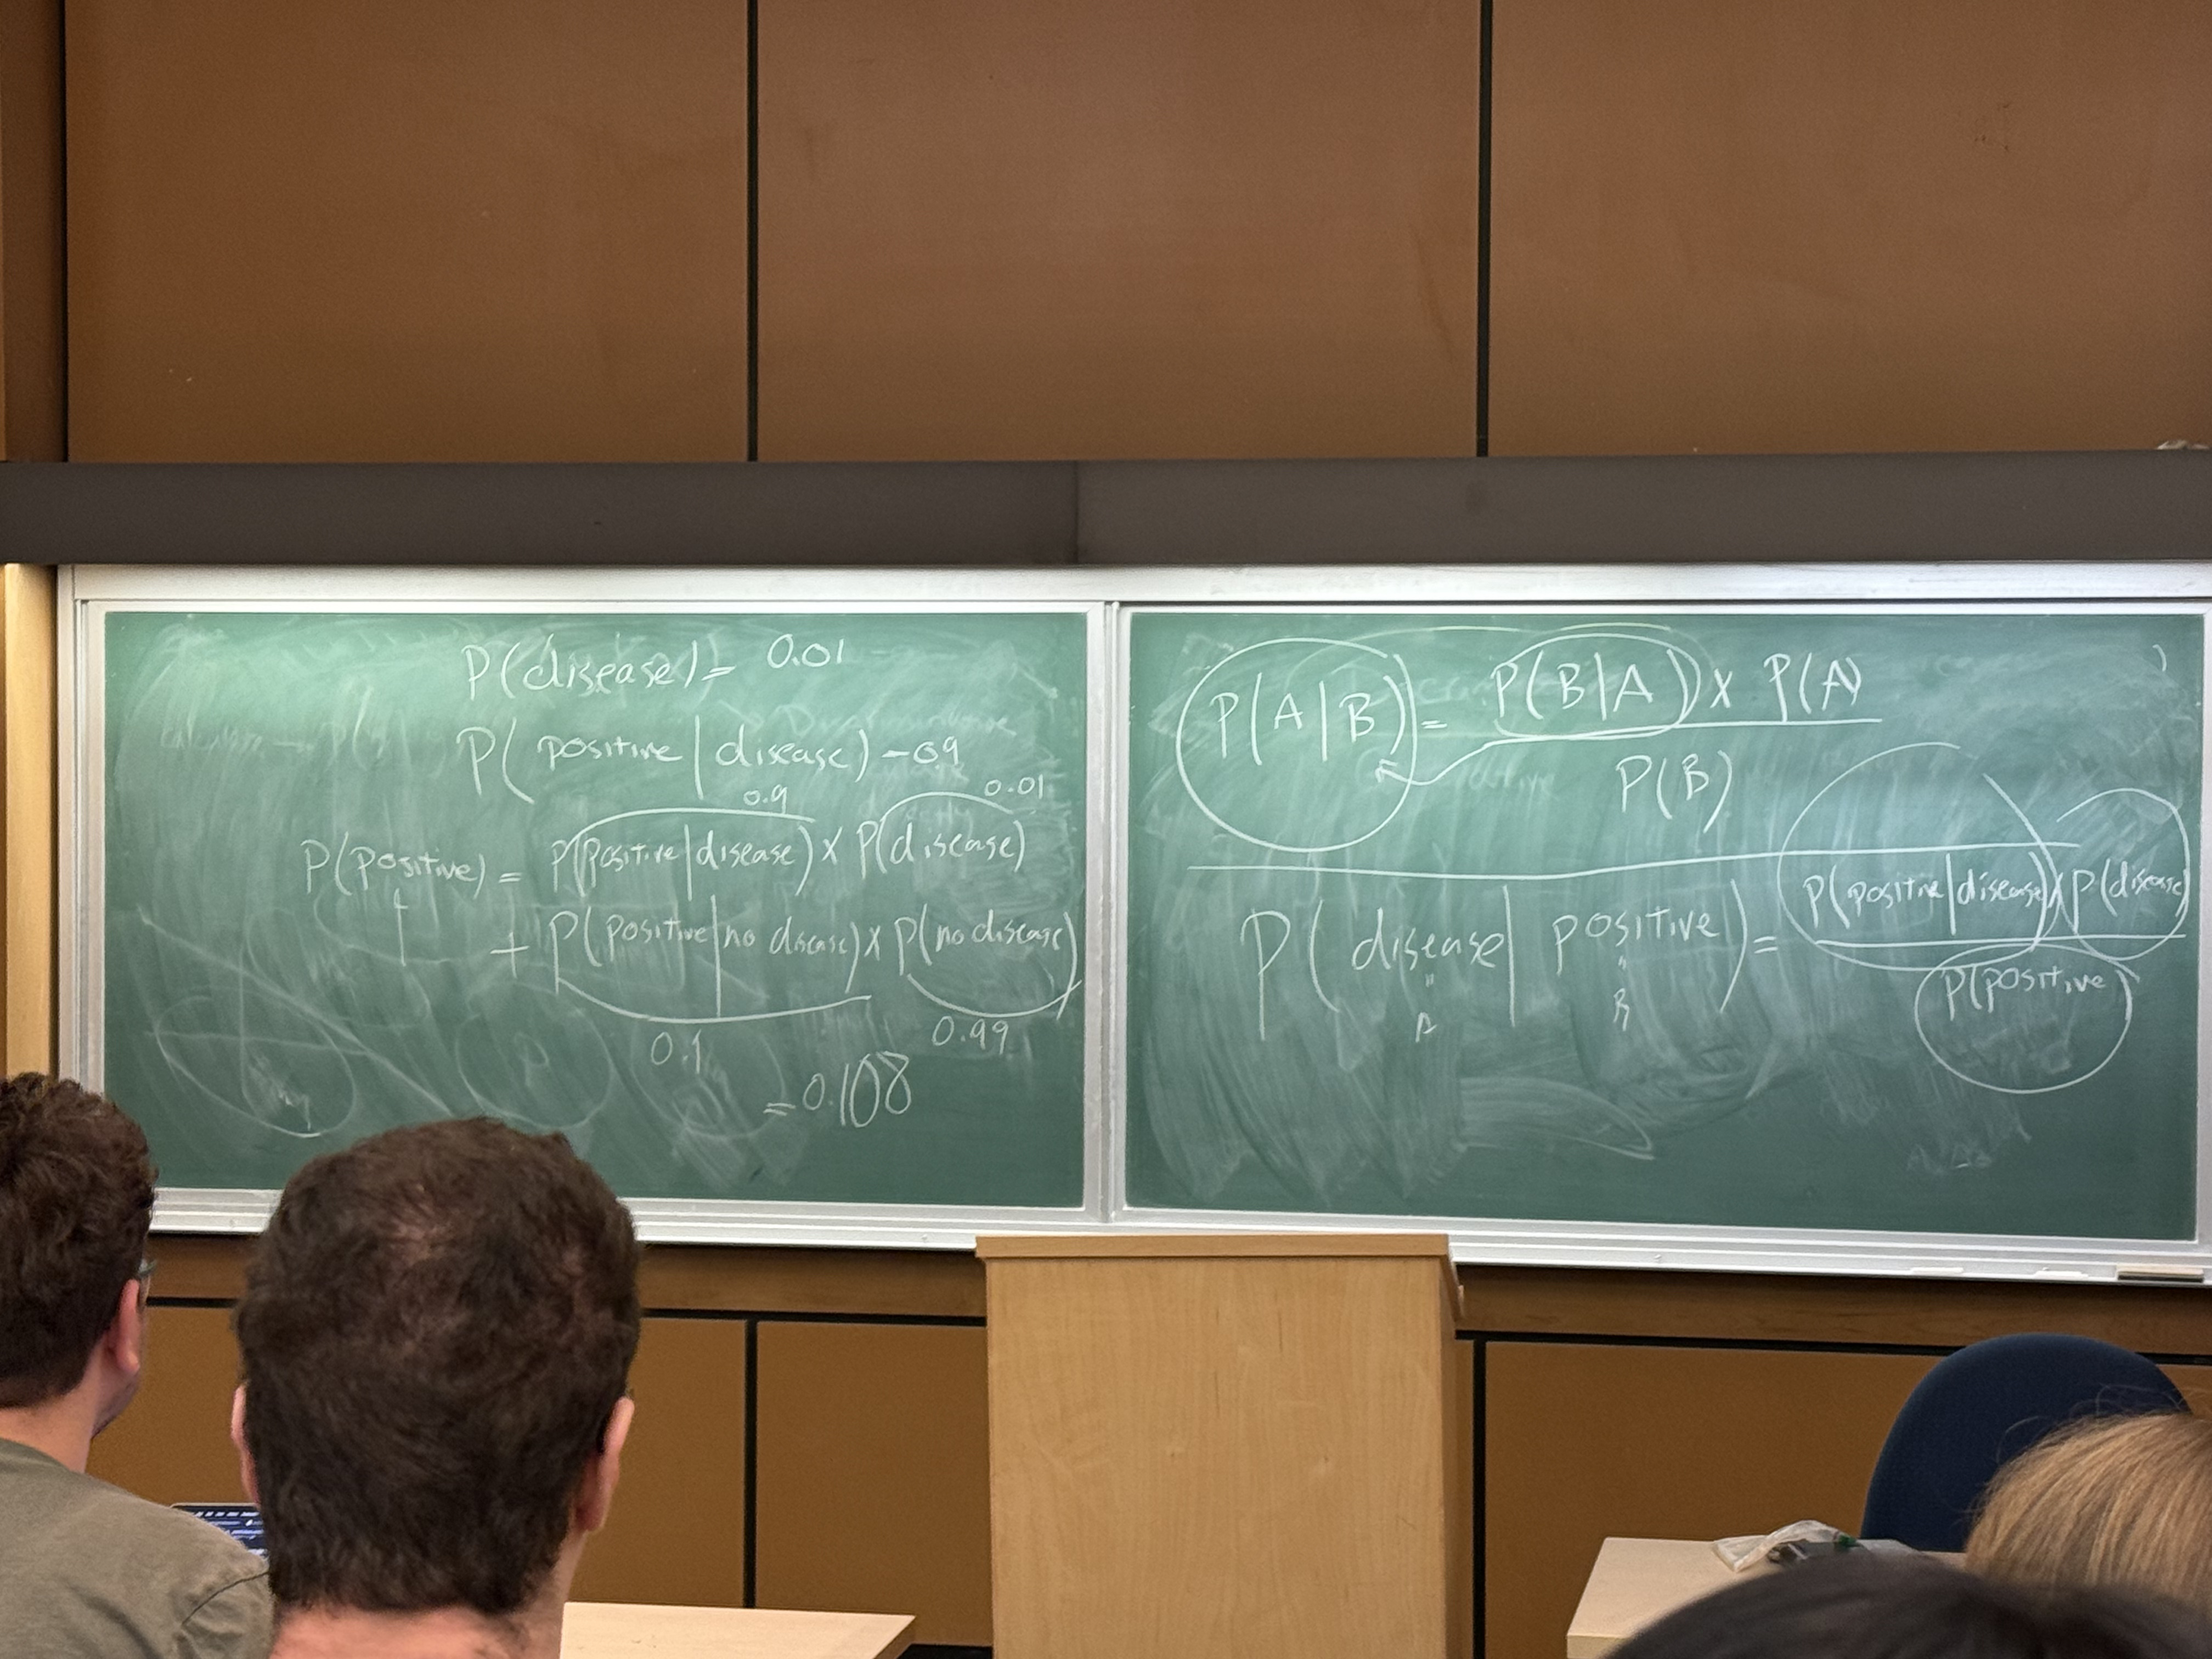 P(disease) = 0.01
P(positive|disease) = 0.9
0.9 0.01
P(positive) = P(positive|disease) x P(disease)
+ P(positive|no disease) x P(no disease)
0.1 0.99
= 0.108
P(A|B) = P(B|A) x P(A)
P(B)
P(positive|disease) x P(disease)
P(disease|positive) =
P(positive)
" "
A B